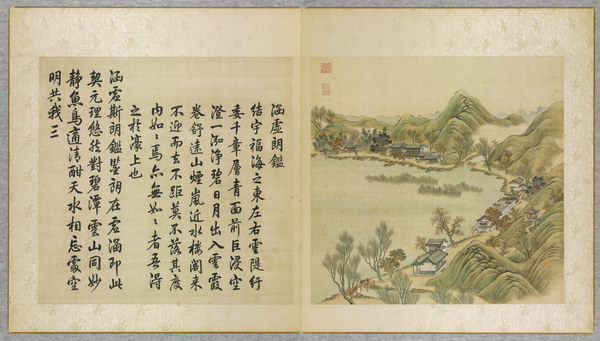 涵虛朗鑑
結宇福海之東左右雲隄紆
委千章層青面前巨浸空
澄一泓淨碧日月出入雲霞
卷舒遠山煙嵐近水樓閣來
不迎而去不距莫不落其度
內如〻焉亦無如〻者吾得
之於濠上也
涵虛斯朗鑑鑑朗在虛涵即此
契元理悠然對碧潭雲山同妙
靜魚鳥適清酣天水相忘處空
明共我三